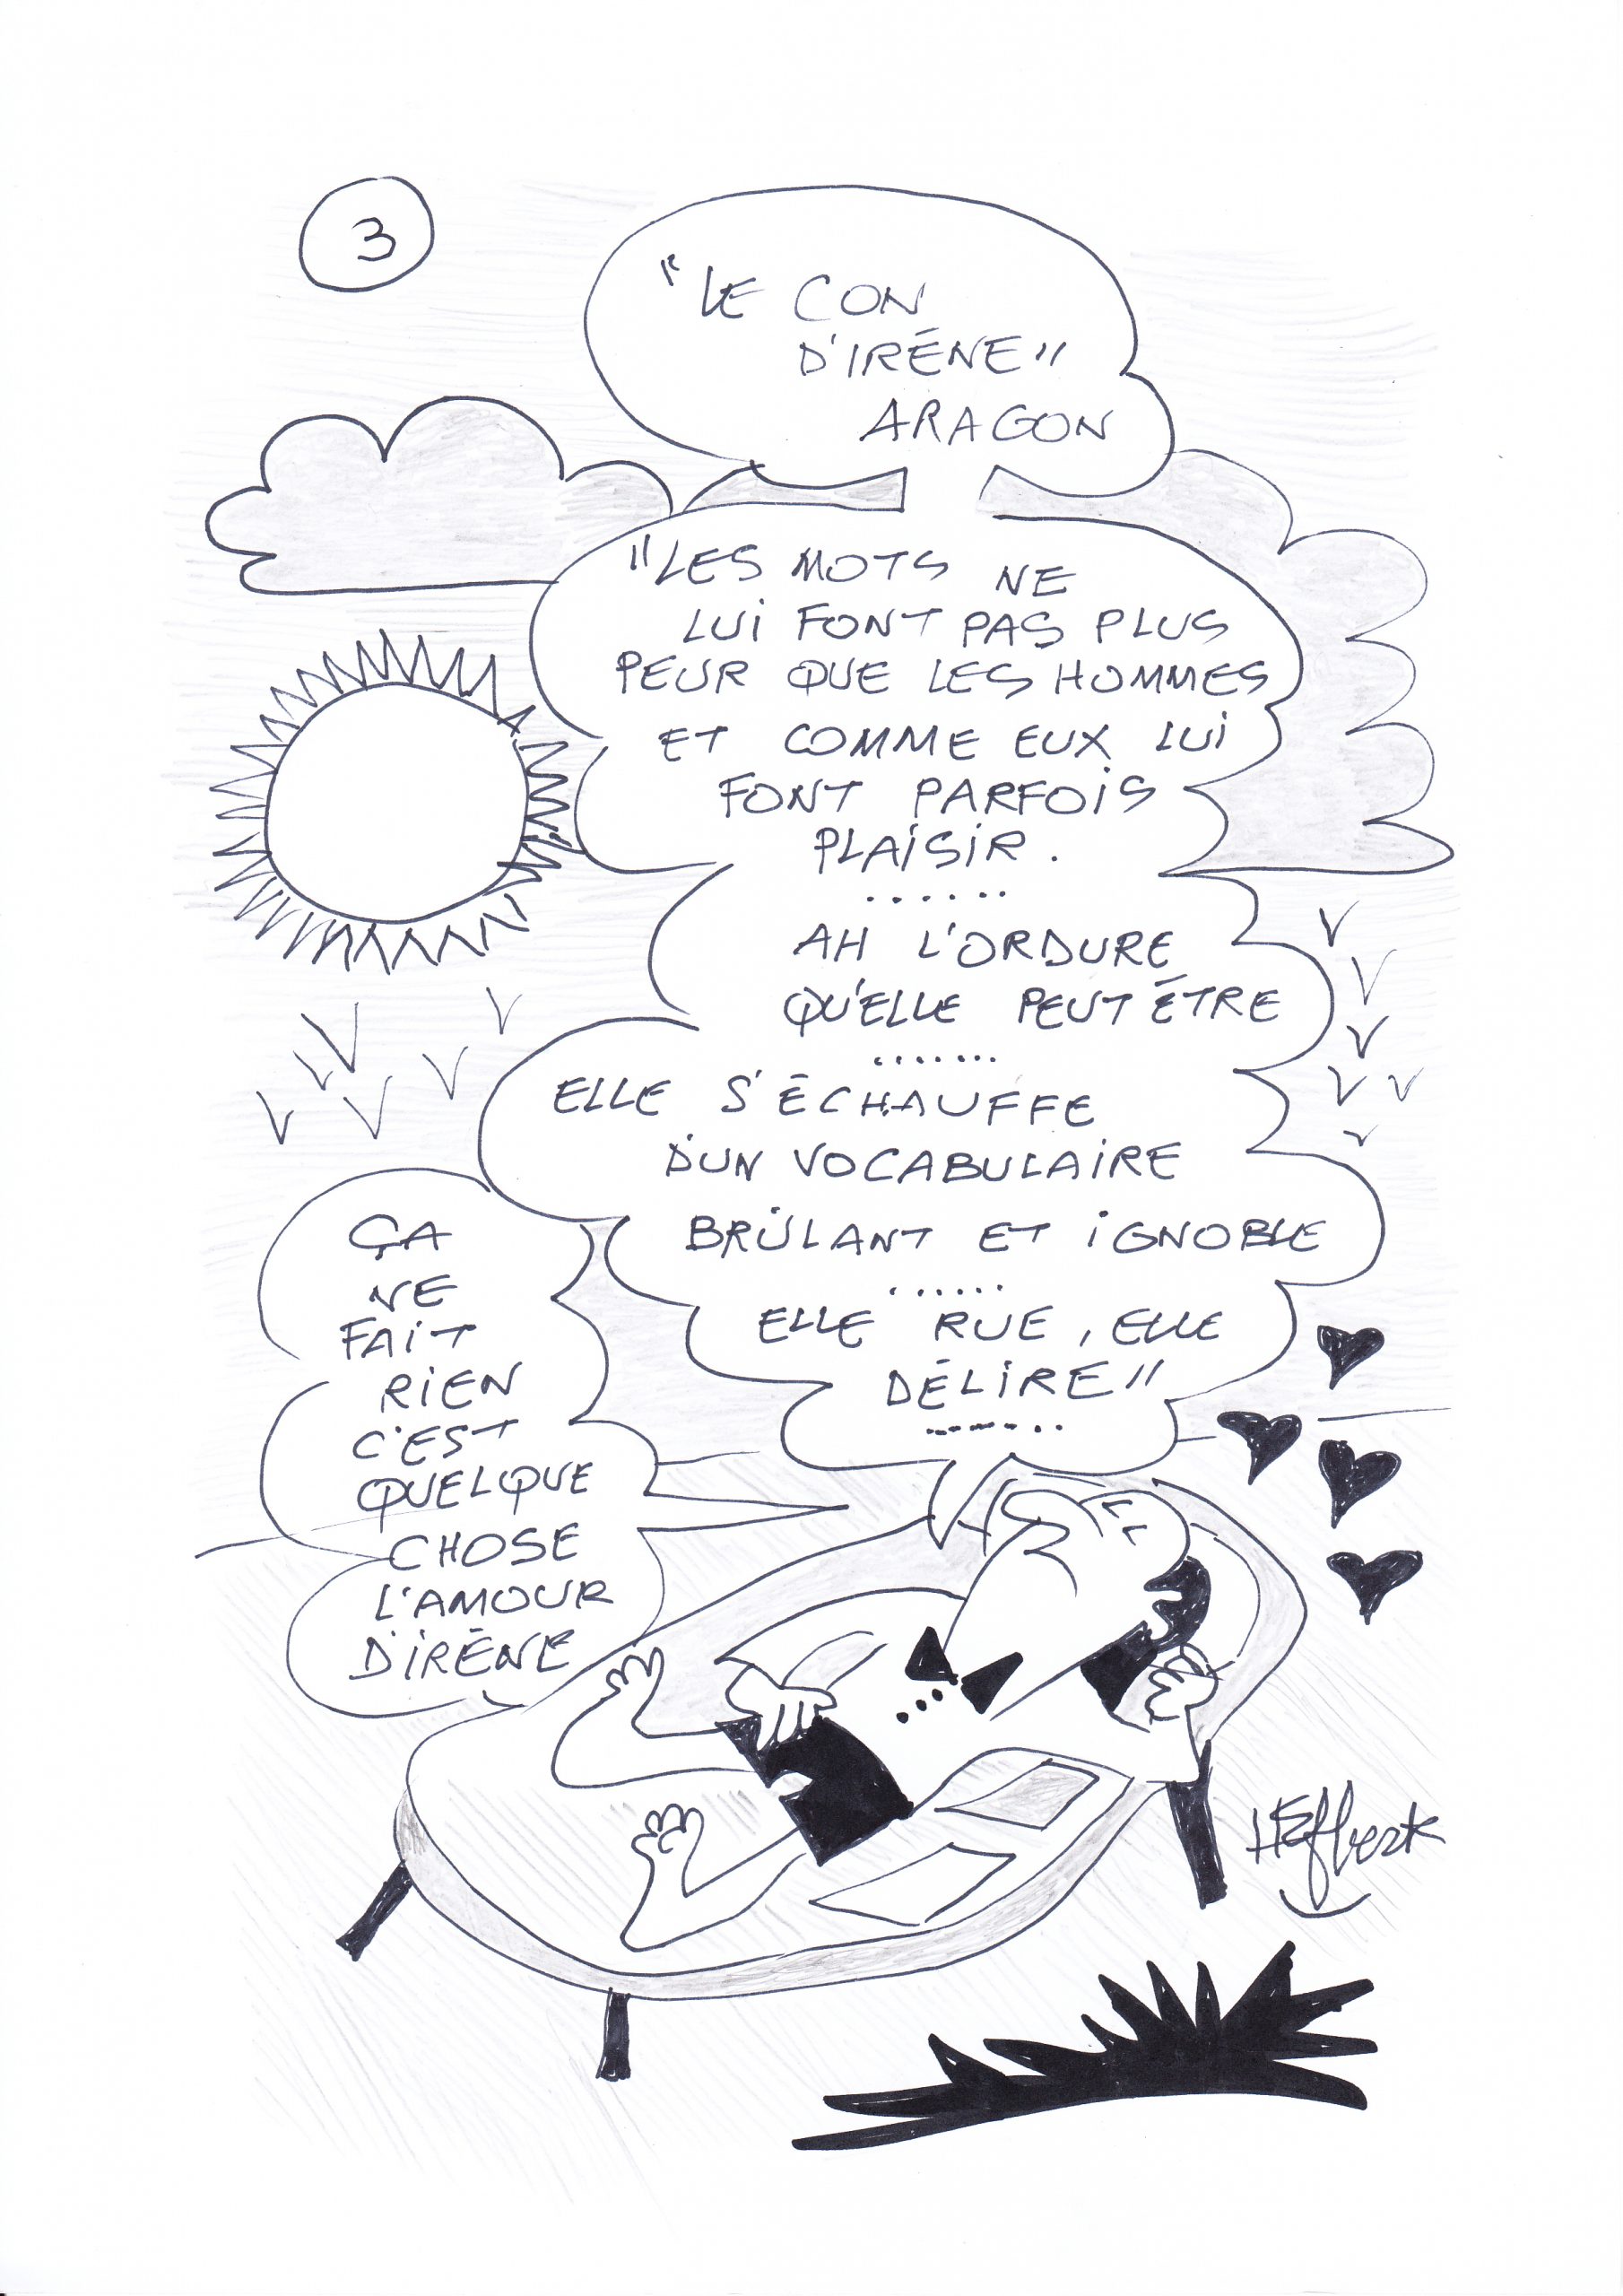 3
"LE CON
D'IRÉNE"
ARAGON
"LES MOTS NE
LUI FONT PAS PLUS
PEUR QUE LES HOMMES
ET COMME EUX LUI
FONT PARFOIS
PLAISIR.
......
AH L'ORDURE
QU'ELLE PEUT ÊTRE
.......
ELLE S'ÉCHAUFFE
D'UN VOCABULAIRE
BRÛLANT ET IGNOBLE
......
ELLE RUE, ELLE
DÉLIRE"
.......
ÇA
NE
FAIT
RIEN
C'EST
QUELQUE
CHOSE
L'AMOUR
D'IRÉNE